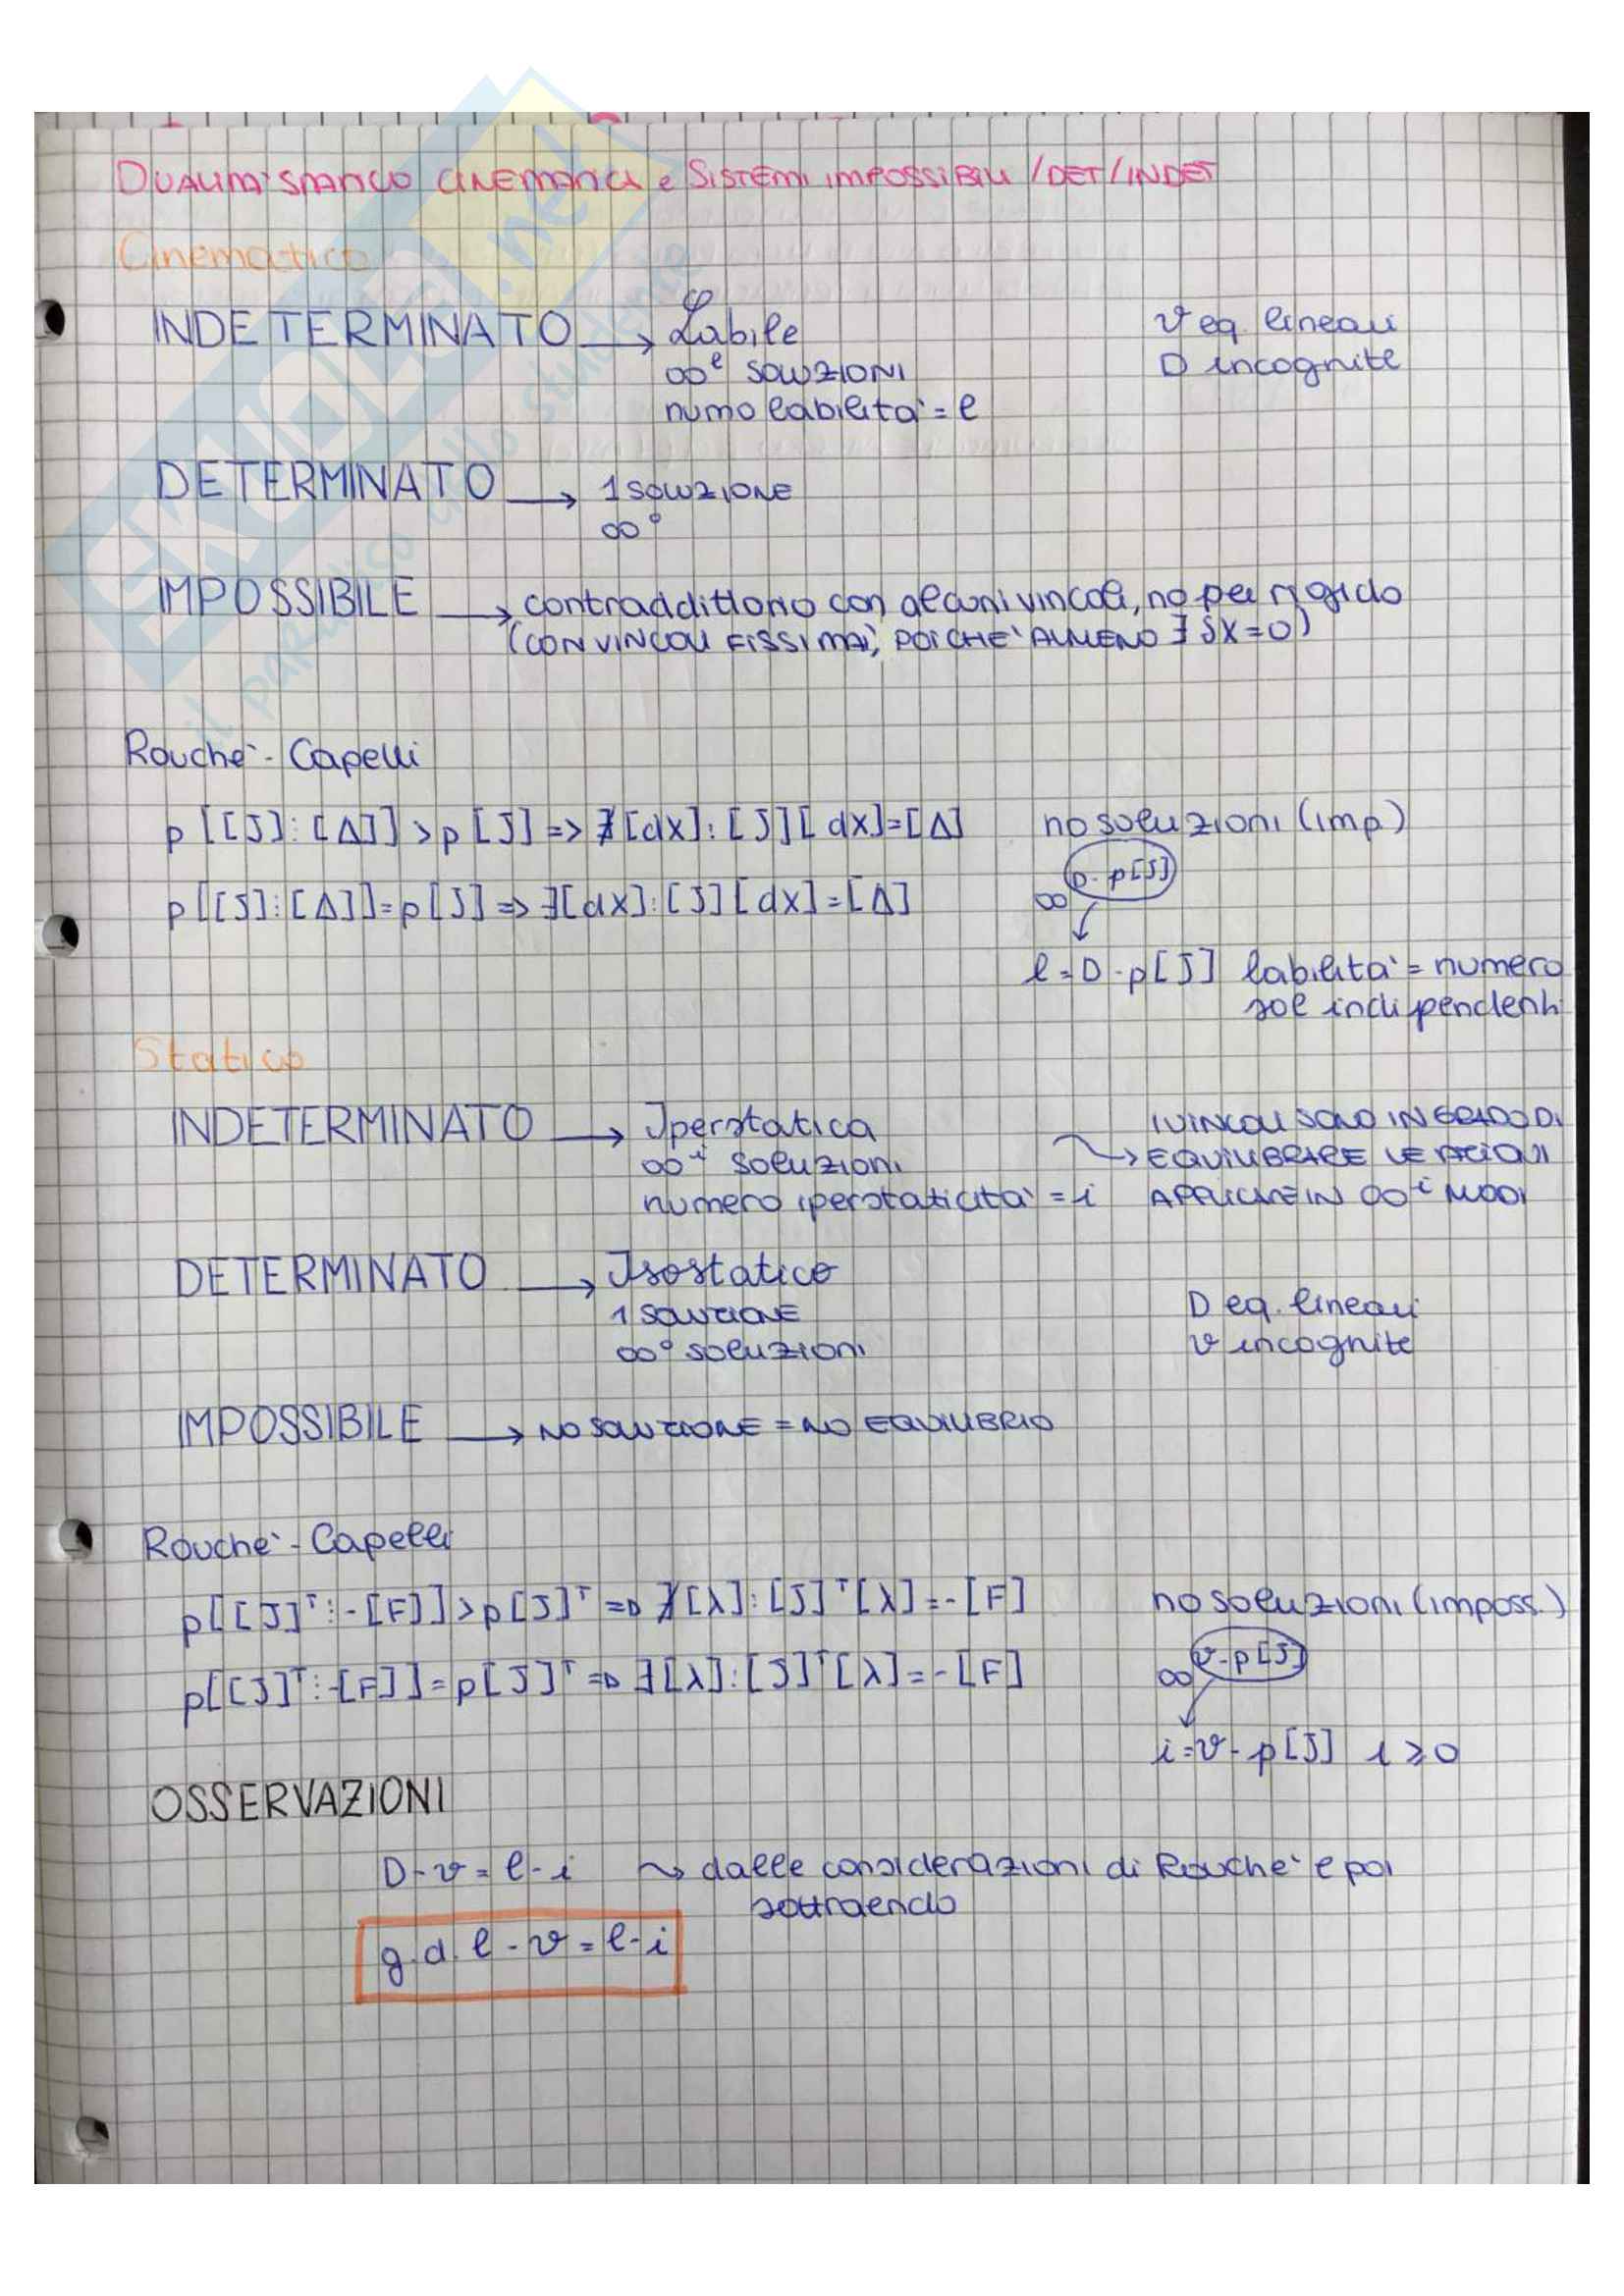 DUALITA' STATICO CINEMATICA e SISTEMI IMPOSSIBILI /DET/INDET
Cinematico
INDETERMINATO → Labile
∞^l SOLUZIONI
numo labilita' = l
v eq. lineari
D incognite
DETERMINATO → 1 SOLUZIONE
∞^0
IMPOSSIBILE → contraddittorio con alcuni vincoli, no per rigido
(CON VINCOLI FISSI MAI, POICHE' ALMENO ∃ δX=0)
Rouche' - Capelli
p[[J]⋮[Δ]] > p[J] => ∄[dx]:[J][dx]=[Δ] no soluzioni (imp)
p[[J]⋮[Δ]] = p[J] => ∃[dx]:[J][dx]=[Δ] ∞^D-p[J]
l = D - p[J] labilita' = numero
sol indipendenti
Statico
INDETERMINATO → Iperstatica
∞^i soluzioni
numero iperstaticita' = i
I VINCOLI SONO IN GRADO DI
→ EQUILIBRARE LE AZIONI
APPLICATE IN ∞^i MODI
DETERMINATO → Isostatico
1 SOLUZIONE
∞^0 soluzioni
D eq. lineari
v incognite
IMPOSSIBILE → NO SOLUZIONE = NO EQUILIBRIO
Rouche' - Capelli
p[[J]^T⋮-[F]] > p[J]^T => ∄[λ]:[J]^T[λ]=-[F] no soluzioni (imposs.)
p[[J]^T⋮-[F]] = p[J]^T => ∃[λ]:[J]^T[λ]=-[F] ∞^v-p[J]
i = v - p[J] i ≥ 0
OSSERVAZIONI
D - v = l - i ~> dalle considerazioni di Rouche' e poi
sottraendo
g.d.l - v = l - i
SKUOLA.net
il paradiso dello studente